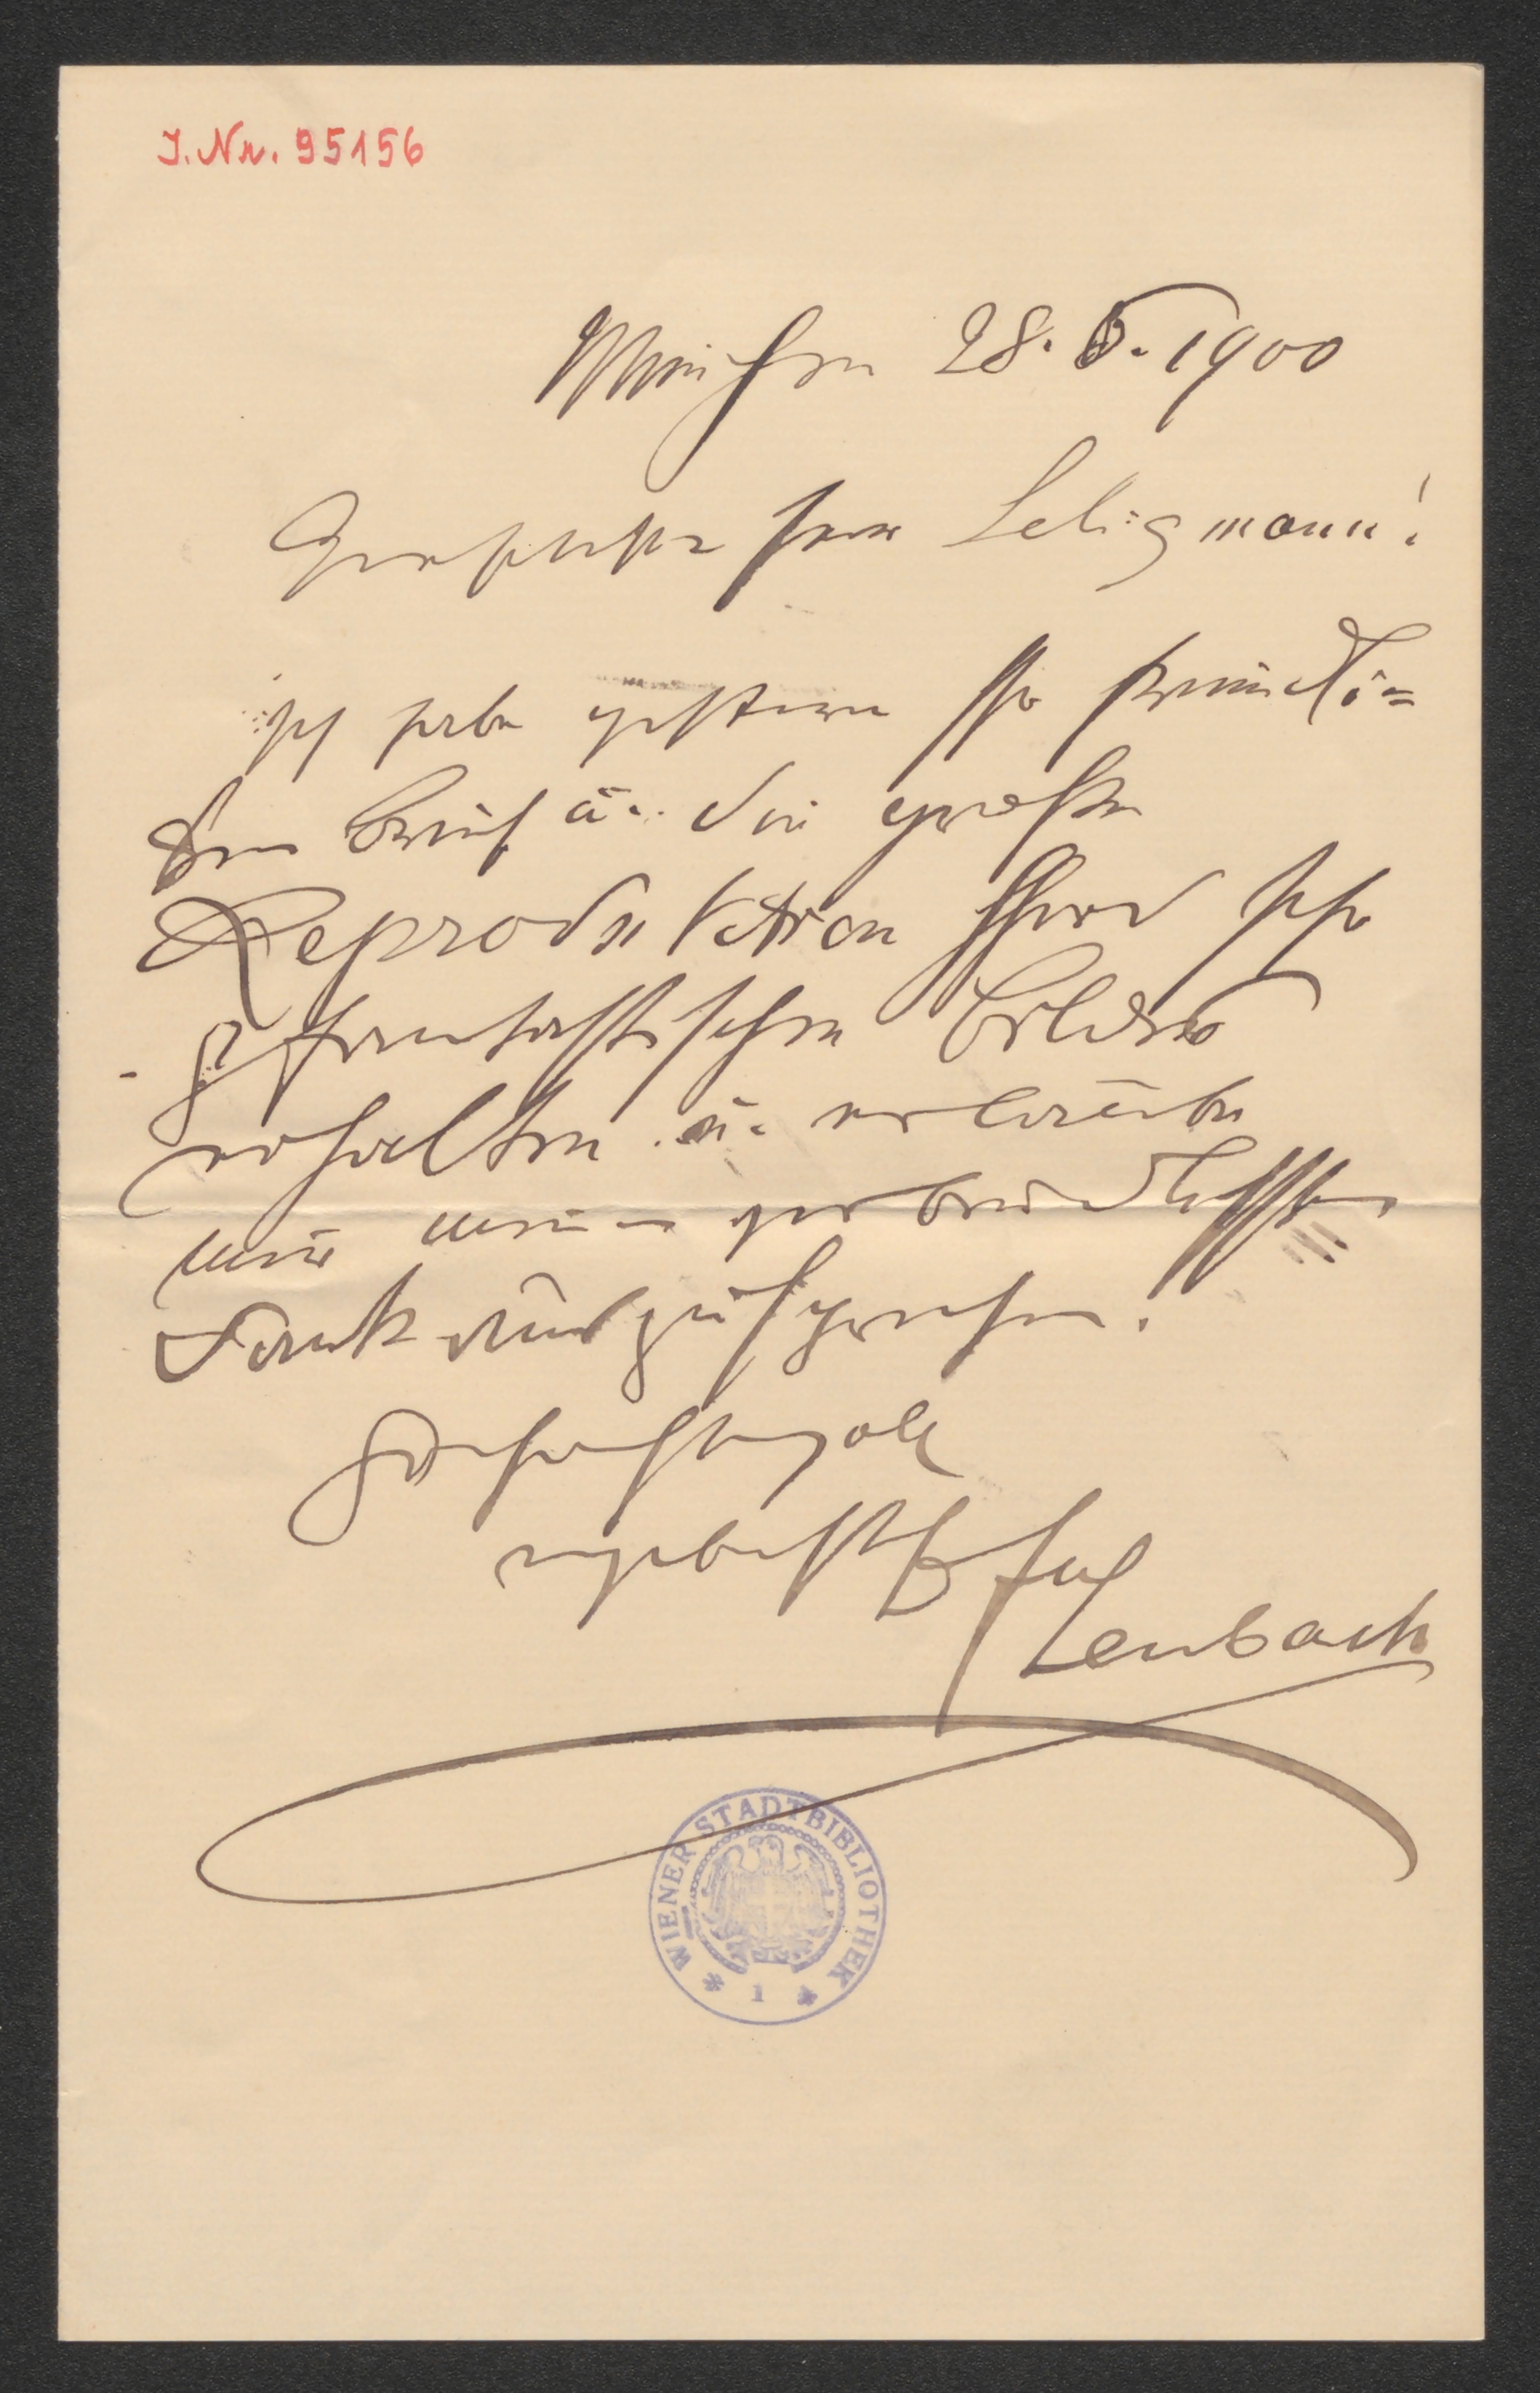 J. Nr. 95156
München 28. 6. 1900
Geehrtester Herr Seligmann!
ich habe gestern Ihr freundli=
ches Brief u. die große
Reproduktion Ihres sehr
phantastischen Bildes
erhalten u. erlaube
mir meinen verbindlichsten
Dank auszusprechen.
Hochachtungsvoll
ergebenst
FLenbach
WIENER STADTBIBLIOTHEK
* 1 *